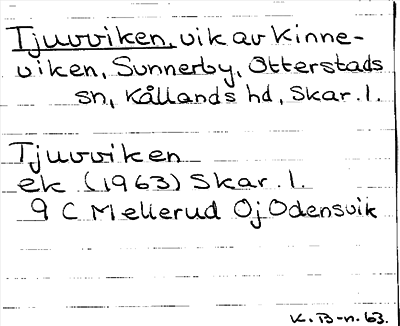 Tjuvviken, vik av Kinne-
viken, Sunnerby, Otterstads
sn, Kållands hd, Skar. l.
Tjuvviken
ek (1963) Skar. l.
9 C Mellerud Oj Odensvik
K. B-n. 63.